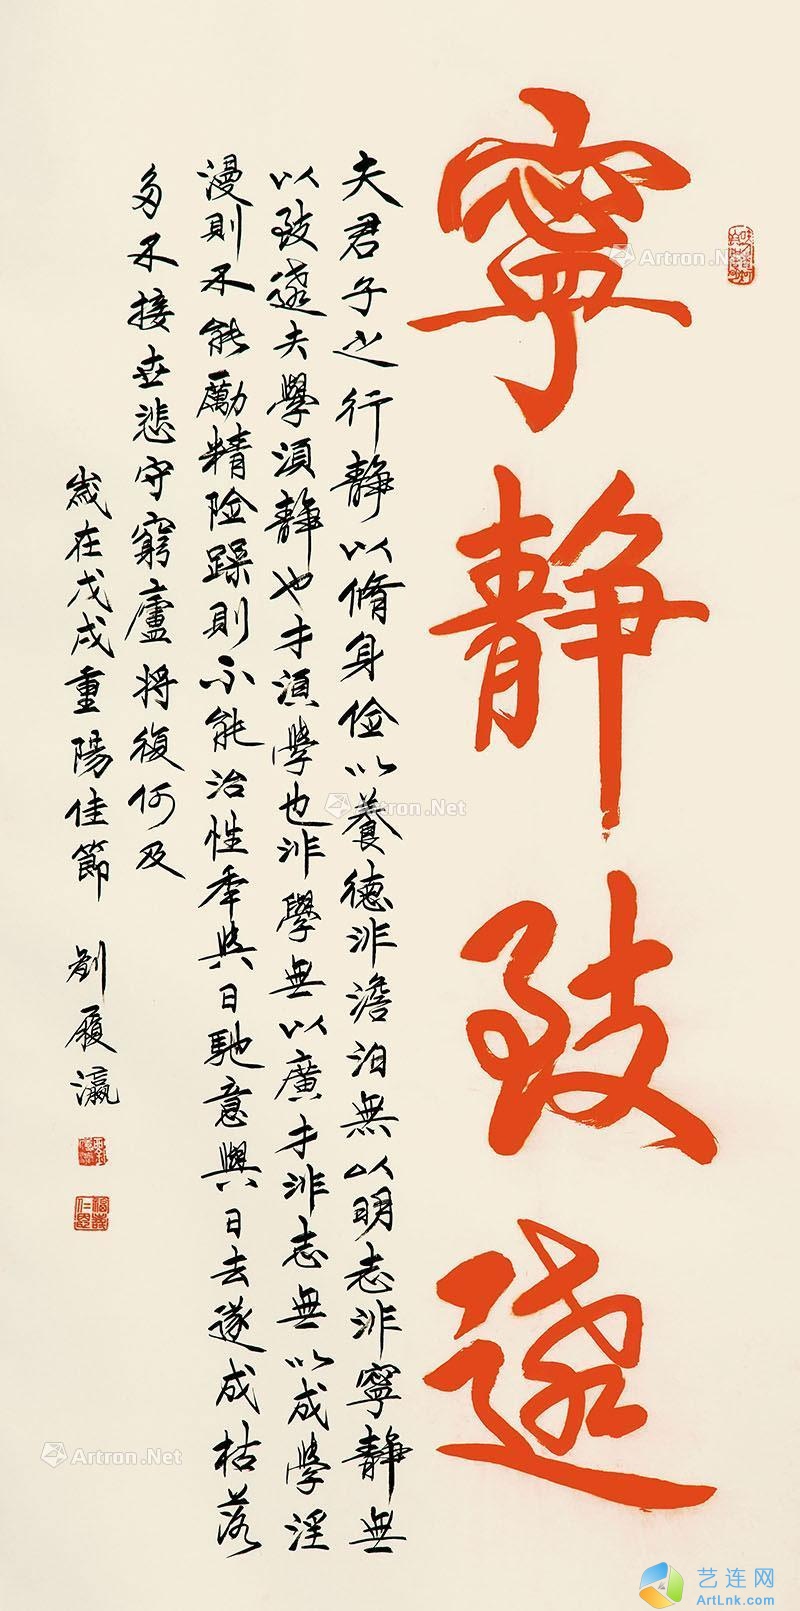 寧靜致遠
夫君子之行靜以脩身儉以養德非澹泊無以明志非寧靜無
以致遠夫學須靜也才須學也非學無以廣才非志無以成學淫
漫則不能勵精險躁則不能治性年與日馳意與日去遂成枯落
多不接世悲守窮廬將復何及
歲在戊戌重陽佳節 劉履瀛
Artron.Net
Artron.Net
Artron.Net
艺连网
ArtLnk.com